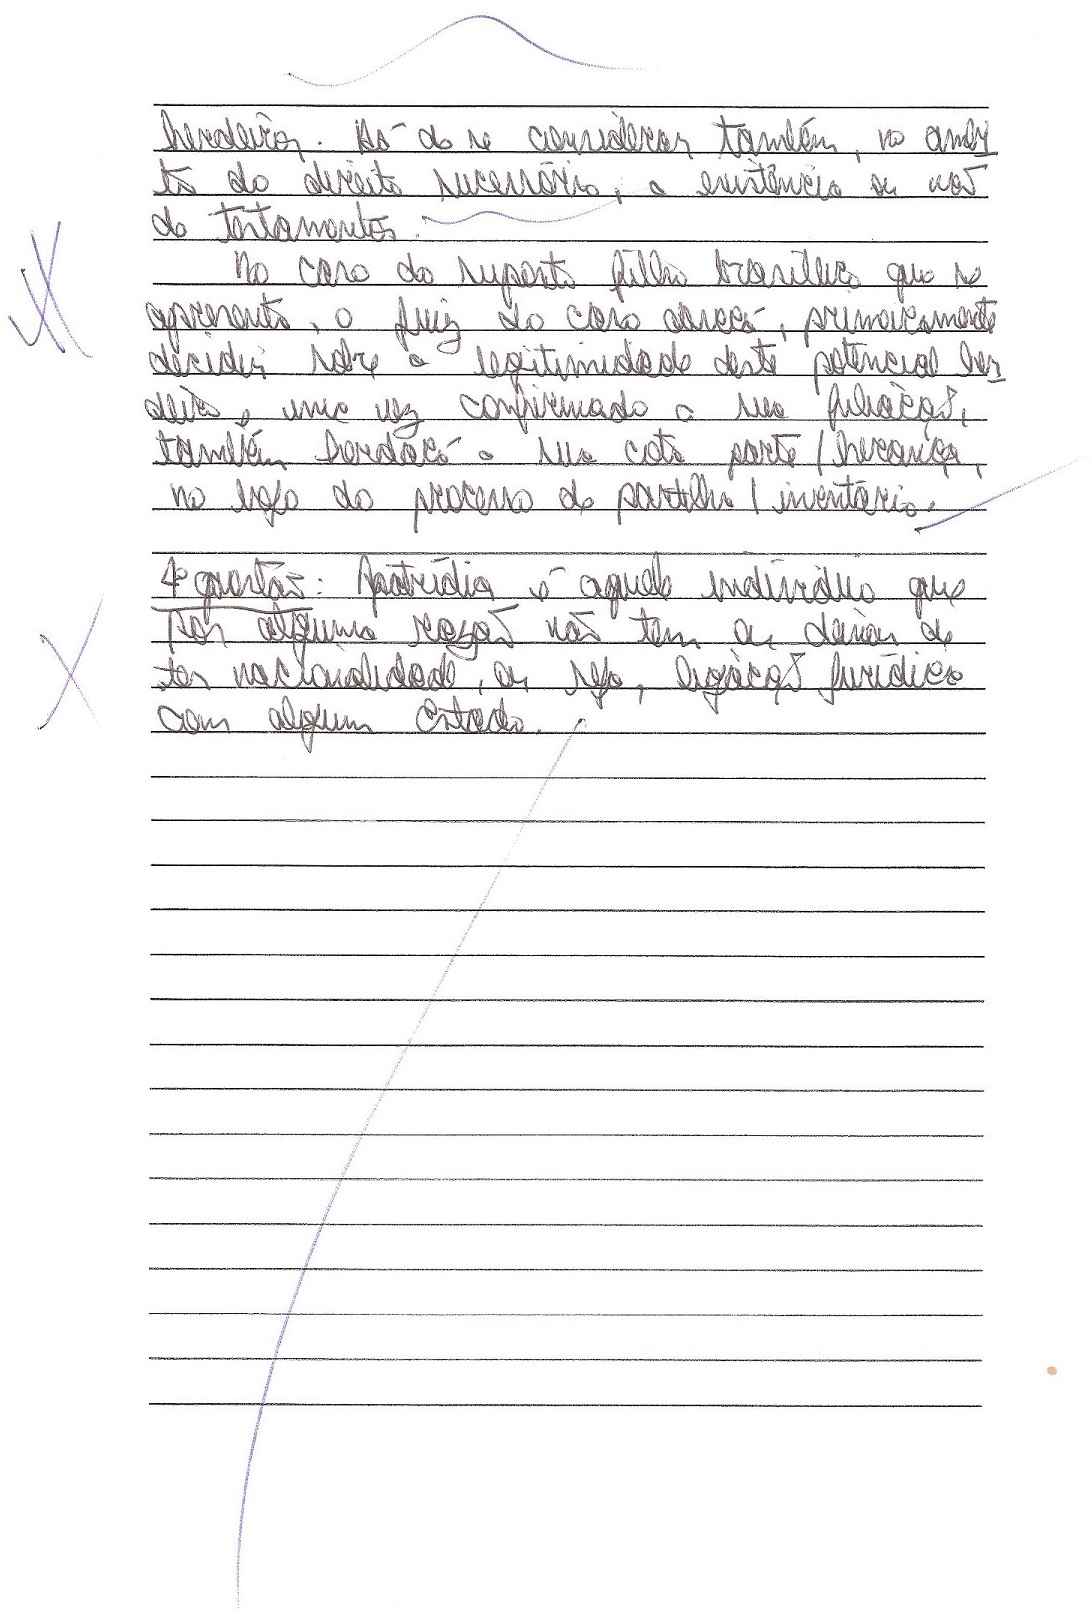 herdeiros. Há de se considerar também, no âmbi
to do direito sucessório, a existência ou não
de testamentos.
No caso do suposto filho brasileiro que se
apresenta, o juiz do caso deverá, primeiramente
decidir sobre a legitimidade deste potencial her
deiro e, uma vez confirmado a sua filiação,
também herdará a sua cota parte / herança,
no bojo do processo de partilha / inventário.
4ª questão: Apátrida é aquele indivíduo que
por alguma razão não tem ou deixou de
ter nacionalidade, ou seja, ligação jurídica
com algum Estado.